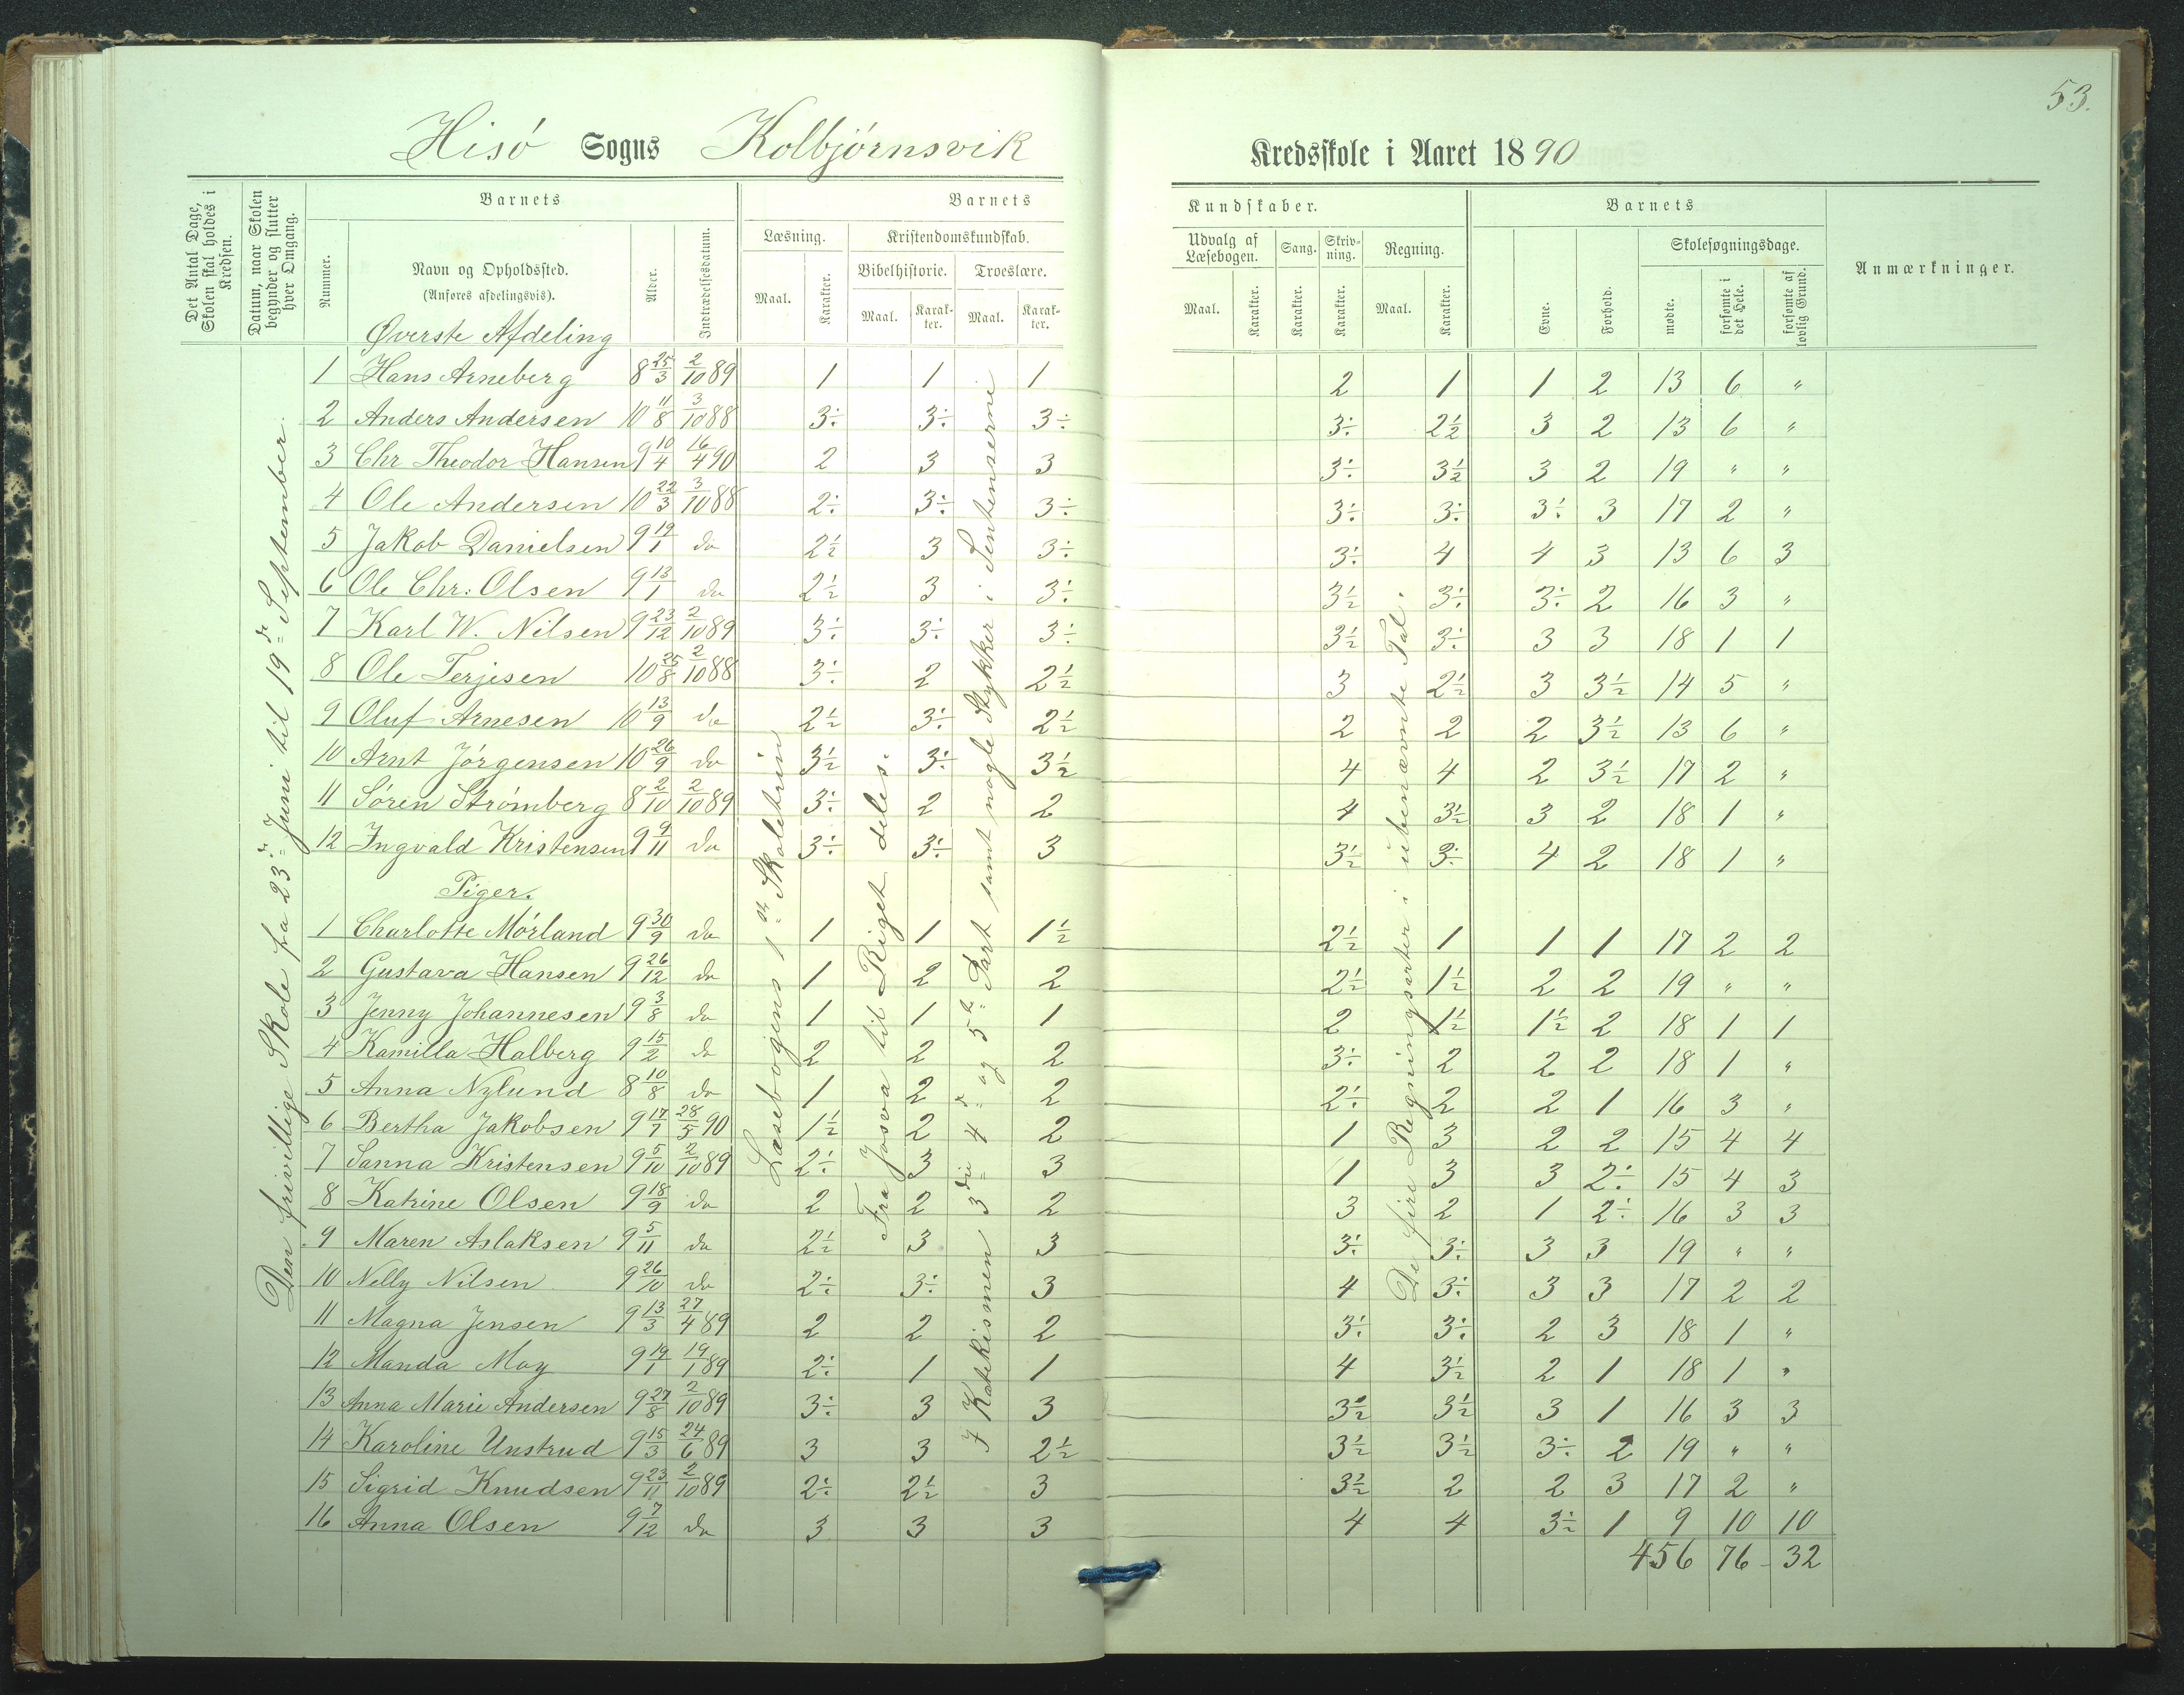 53.
Hisó Sogns Kolbjörnsvik Kredsskole i Aaret 1890
Det Antal Dage, Skolen skal holdes i Kredsen.
Datum, naar Skolen begynder og slutter hver Omgang.
Barnets
Nummer.
Navn og Opholdssted.
(Anføres afdelingsvis).
Alder.
Indtrædelsesdatum.
Barnets
Læsning.
Maal.
Karakter.
Kristendomskundskab.
Bibelhistorie.
Maal.
Karakter.
Troeslære.
Maal.
Karakter.
Kundskaber.
Udvalg af Læsebogen.
Maal.
Karakter.
Sang.
Karakter.
Skrivning.
Karakter.
Regning.
Maal.
Karakter.
Barnets
Evne.
Forhold.
Skolesøgningsdage.
mødte.
forsømte i det Hele.
forsømte af lovlig Grund.
Anmærkninger.
Øverste Afdeling
Den frivillige Skole fra 23de Juni til 19de September.
Læsebogens 1ste Skoletrin
Fra Josva til Riget deles.
I Katekismen 3die 4de og 5te Part samt nogle Stykker i Sentenserne
De fire Regningsarter i ubenævnte Tal.
1 Hans Arneberg 8 25/3 2/10 89 1 1 1 2 1 1 2 13 6 "
2 Anders Andersen 10 11/8 3/10 88 3÷ 3÷ 3÷ 3÷ 2½ 3 2 13 6 "
3 Chr Theodor Hansen 9 10/4 16/4 90 2 3 3 3÷ 3½ 3 2 19 " "
4 Ole Andersen 10 22/3 3/10 88 2÷ 3÷ 3÷ 3÷ 3÷ 3÷ 3 17 2 "
5 Jakob Danielsen 9 19/1 do 2½ 3 3÷ 3÷ 4 4 3 13 6 3
6 Ole Chr: Olsen 9 13/1 do 2½ 3 3÷ 3½ 3÷ 3÷ 2 16 3 "
7 Karl W. Nilsen 9 23/12 2/10 89 3÷ 3÷ 3÷ 3½ 3÷ 3 3 18 1 1
8 Ole Terjesen 10 25/8 2/10 88 3÷ 2 2½ 3 2½ 3 3½ 14 5 "
9 Oluf Arnesen 10 13/9 do 2½ 3÷ 2½ 2 2 2 3½ 13 6 "
10 Arnt Jörgensen 10 26/9 do 3½ 3÷ 3½ 4 4 2 3½ 17 2 "
11 Sören Strömberg 8 2/10 2/10 89 3÷ 2 2 4 3½ 3 2 18 1 "
12 Ingvald Kristensen 9 9/11 do 3÷ 3÷ 3 3½ 3÷ 4 2 18 1 "
Piger.
1 Charlotte Mörland 9 30/9 do 1 1 1½ 2½ 1 1 1 17 2 2
2 Gustava Hansen 9 26/12 do 1 2 2 2½ 1½ 2 2 19 " "
3 Jenny Johannesen 9 3/8 do 1 1 1 2 1½ 1½ 2 18 1 1
4 Kamilla Halberg 9 15/2 do 2 2 2 3÷ 2 2 2 18 1 "
5 Anna Nylund 8 10/8 do 1 2 2 2÷ 2 2 1 16 3 "
6 Bertha Jakobsen 9 17/7 28/5 90 1½ 2 2 1 3 2 2 15 4 4
7 Sanna Kristensen 9 5/10 2/10 89 2÷ 3 3 1 3 3 2÷ 15 4 3
8 Katrine Olsen 9 18/9 do 2 2 2 3 2 1 2÷ 16 3 3
9 Maren Aslaksen 9 5/11 do 2½ 3 3 3÷ 3÷ 3 3 19 " "
10 Nelly Nilsen 9 26/10 do 2÷ 3÷ 3 4 3÷ 3 3 17 2 2
11 Magna Jensen 9 13/3 27/4 89 2 2 2 3÷ 3÷ 2 3 18 1 "
12 Manda Moy 9 19/1 19/1 89 2÷ 1 1 4 3½ 2 1 18 1 "
13 Anna Marie Andersen 9 27/8 2/10 89 3÷ 3 3 3½ 3½ 3 1 16 3 3
14 Karoline Unstrud 9 15/3 24/6 89 3 3 2½ 3½ 3½ 3÷ 2 19 " "
15 Sigrid Knudsen 9 23/11 2/10 89 2÷ 2½ 3 3½ 2 2 3 17 2 "
16 Anna Olsen 9 7/12 do 3 3 3 4 4 3½ 1 9 10 10
456 76 - 32